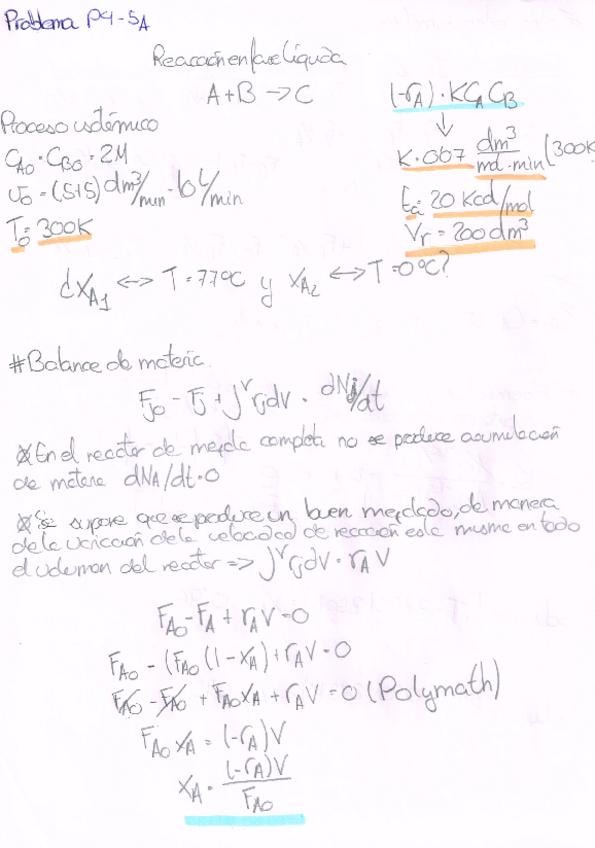 Problema P4-5A
Reacción en fase líquida
A + B → C
(-rA) = K CA CB
Proceso isotérmico
CA0 = CB0 = 2M
K = 0'07 dm³/mol·min (300K)
υ0 = (5+5) dm³/min = 10 L/min
Ea = 20 Kcal/mol
T0 = 300K
Vr = 200 dm³
¿XA1 ↔ T = 77ºC y XA2 ↔ T = 0ºC?
# Balance de materia.
Fj0 - Fj + ∫ᵛ rj dV = dNj/dt
* En el reactor de mezcla completa no se produce acumulación
de materia dNA/dt = 0
* Se supone que se produce un buen mezclado, de manera
de la variación de la velocidad de reacción es la misma en todo
el volumen del reactor => ∫ᵛ rj dV = rA V
FA0 - FA + rA V = 0
FA0 - (FA0 (1 - XA) + rA V = 0
FA0 - FA0 + FA0 XA + rA V = 0 (Polymath)
FA0 XA = (-rA) V
XA = (-rA) V / FA0